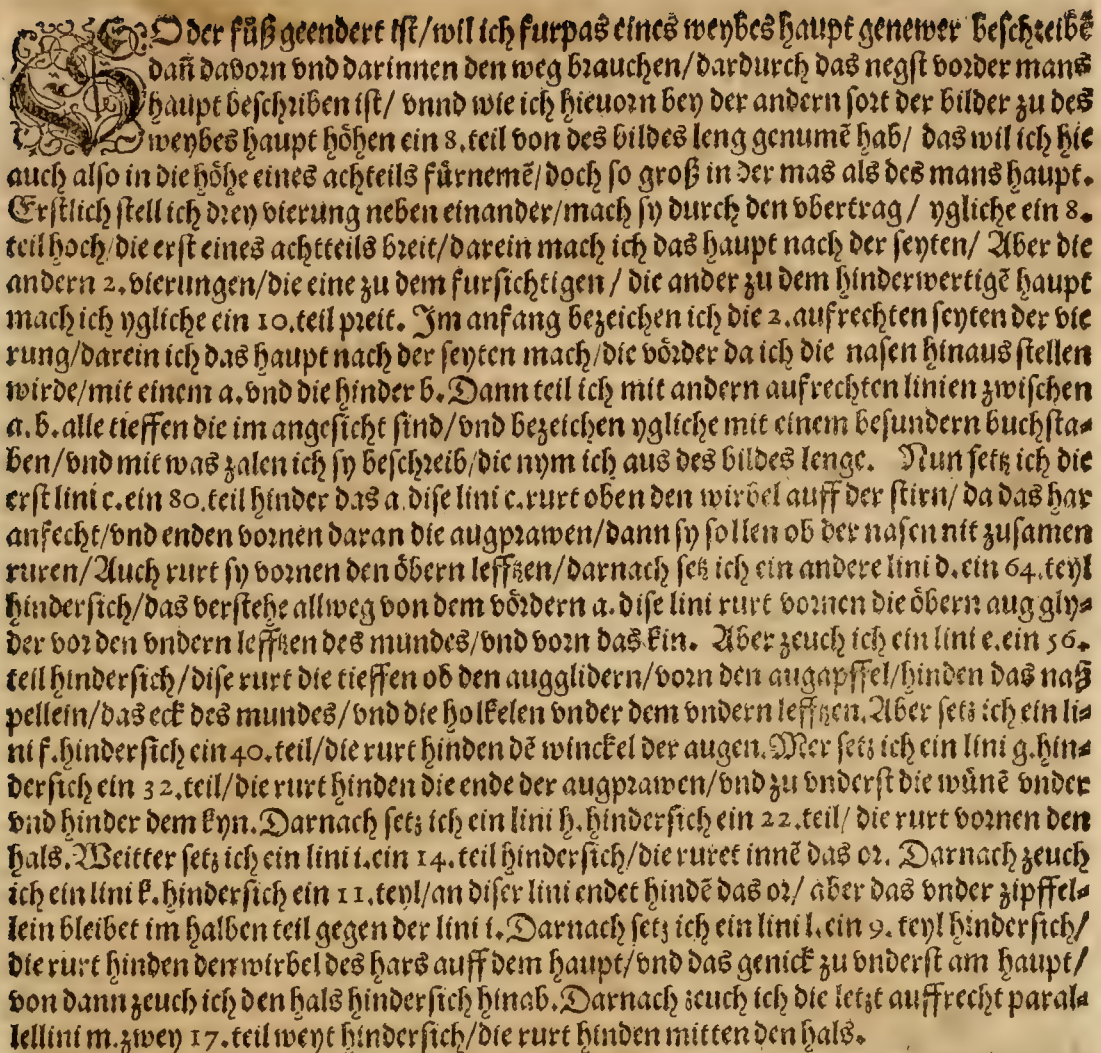 SO der füß geendert ist/wil ich furpas eines weybes haupt genewer beschreibē
dañ dauorn vnd darinnen den weg brauchen/dardurch das negst vorder mans
haupt beschriben ist/ vnnd wie ich hieuorn bey der andern sort der bilder zu des
weybes haupt höhen ein 8.teil von des bildes leng genumē hab/ das wil ich hie
auch also in die höhe eines achteils fürnemē/doch so groß in der mas als des mans haupt.
Erstlich stell ich drey vierung neben einander/mach sy durch den vbertrag/ ygliche ein 8.
teil hoch/die erst eines achtteils breit/darein mach ich das haupt nach der seyten/ Aber die
andern 2.vierungen/die eine zu dem fursichtigen/ die ander zu dem hinderwertigē haupt
mach ich ygliche ein 10.teil preit. Im anfang bezeichen ich die 2.aufrechten seyten der vie
rung/darein ich das haupt nach der seyten mach/die vörder da ich die nasen hinaus stellen
wirde/mit einem a.vnd die hinder b. Dann teil ich mit andern aufrechten linien zwischen
a.b.alle tieffen die im angesicht sind/vnd bezeichen ygliche mit einem besundern buchsta⸗
ben/vnd mit was zalen ich sy beschreib/die nym ich aus des bildes lenge. Nun setz ich die
erst lini c.ein 80.teil hinder das a.dise lini c.rurt oben den wirbel auff der stirn/da das har
anfecht/vnd enden vornen daran die augprawen/dann sy sollen ob der nasen nit zusamen
ruren/Auch rurt sy vornen den öbern lefftzen/darnach setz ich ein andere lini d.ein 64.teyl
hindersich/das verstehe allweg von dem vördern a.dise lini rurt vornen die öbern aug gly⸗
der vor den vndern lefftzen des mundes/vnd vorn das kin. Aber zeuch ich ein lini e.ein 56.
teil hindersich/dise rurt die tieffen ob den augglidern/vorn den augapffel/hinden das naß
pellein/das eck des mundes/vnd die holkelen vnder dem vndern lefftzen.Aber setz ich ein li⸗
ni f.hindersich ein 40.teil/die rurt hinden dē winckel der augen.Mer setz ich ein lini g.hin⸗
dersich ein 32.teil/die rurt hinden die ende der augprawen/vnd zu vnderst die wünē vnder
vnd hinder dem kyn.Darnach setz ich ein lini h.hindersich ein 22.teil/ die rurt vornen den
hals.Weitter setz ich ein lini i.ein 14.teil hindersich/die ruret innē das or. Darnach zeuch
ich ein lini k.hindersich ein 11.teyl/an diser lini endet hindē das or/ aber das vnder zipffel⸗
lein bleibet im halben teil gegen der lini i.Darnach setz ich ein lini l.ein 9.teyl hindersich/
die rurt hinden den wirbel des hars auff dem haupt/vnd das genick zu vnderst am haupt/
von dann zeuch ich den hals hindersich hinab.Darnach zeuch ich die letzt auffrecht paral⸗
lellini m.zwey 17.teil weyt hindersich/die rurt hinden mitten den hals.